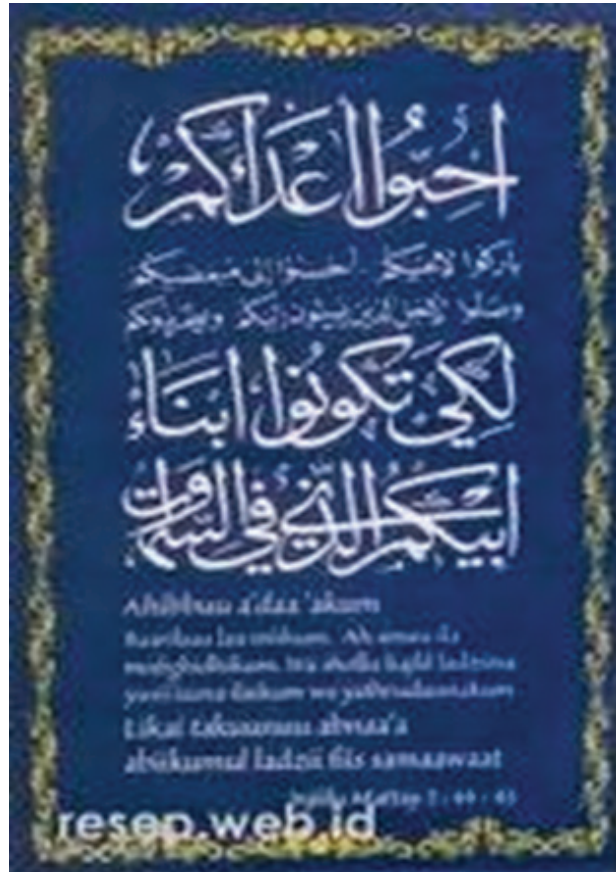 احِبُّوا اَعْدَاءَكُمْ
باركوا لاعنيكم . احسنوا إلى مبغضيكم
وصلوا لاجل الذين يسيئون إليكم ويطردونكم
لِكَيْ تَكُونُوا ابْنَاءَ
ابِيكُمُ الَّذِي فِي السَّمَاوَاتِ
Ahibbuu a'daa 'akum
Baarikuu laa'iniikum. Ah sinuu ila
mubghidhikum. Wa shollu liajlil ladziina
yusii'uuna ilaikum wa yathruduunakum
Likai takuunuu abnaa'a
abiikumul ladzii fiis samaawaat
5 : 44 - 45
resep.web.id